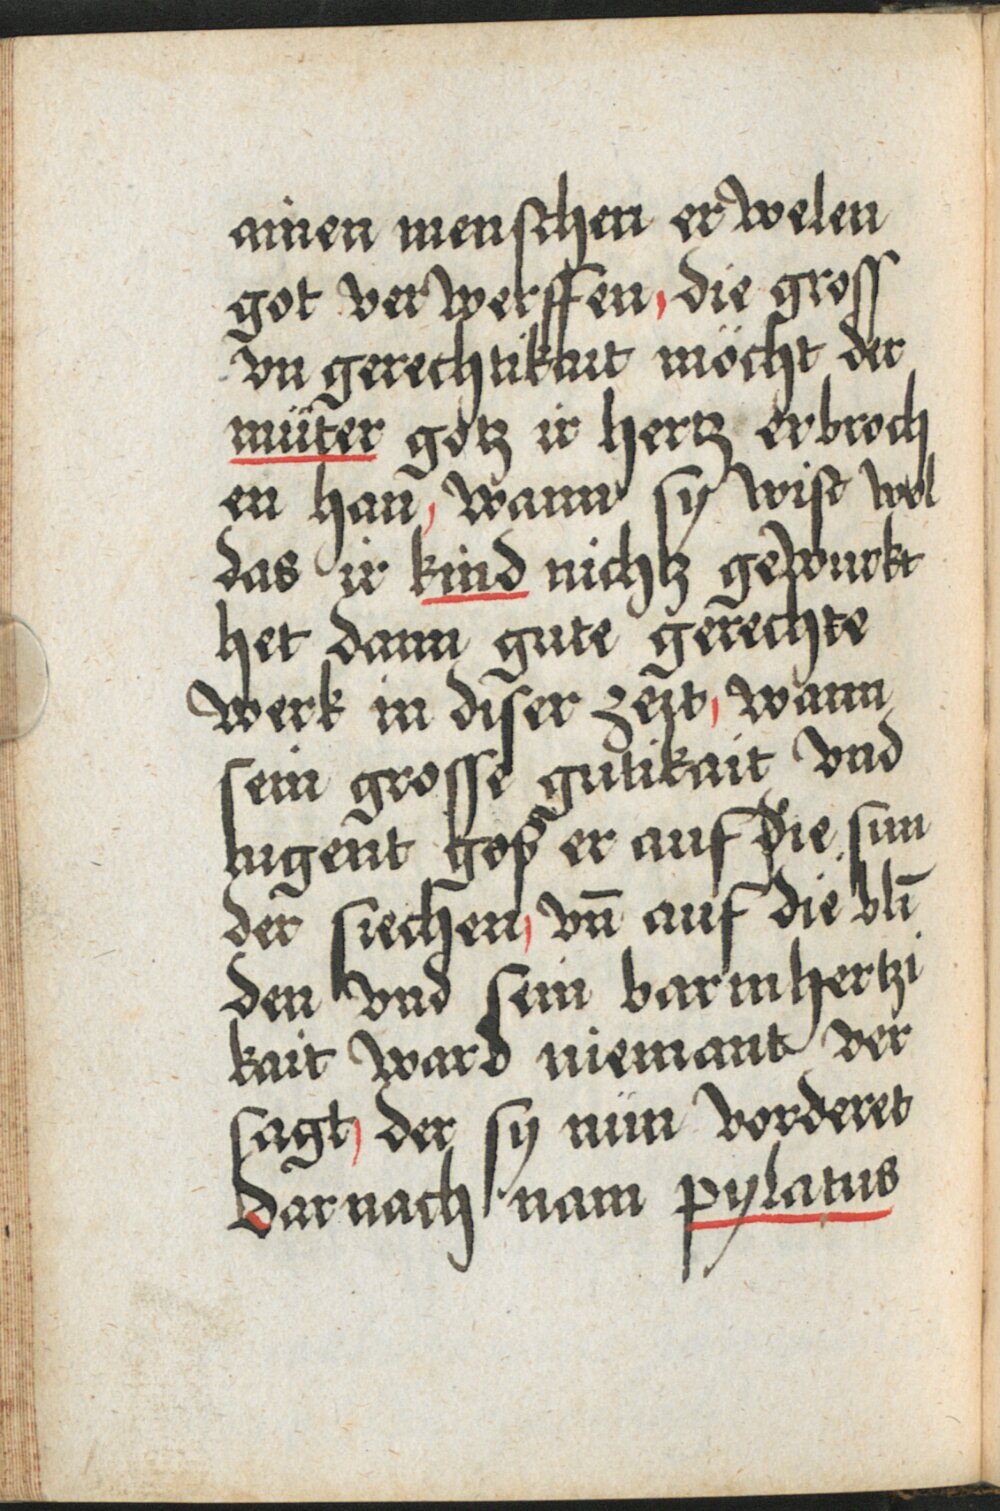 ainen menschen erwelen
got verwerffen, die gross
vngerechtikait möcht der
müter gotz ir hertz erbroch
en han, wann sy wist wol
das ir kind nichtz gewurkt
het dann gute gerechte
werk in diser zeyt, wann
sein grosse gutikait vnd
tugent goß er auf die sun
der siechen, vn̄ auf die blī
den vnd sein barmhertzi
kait ward niemant ver
sagt, der sy nün vorderet
Darnach nam pylatus